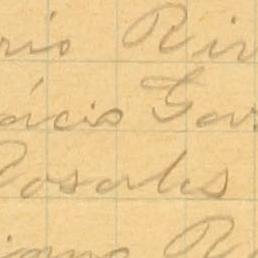 rio Riv
ácio Gar
Rosales
iano R